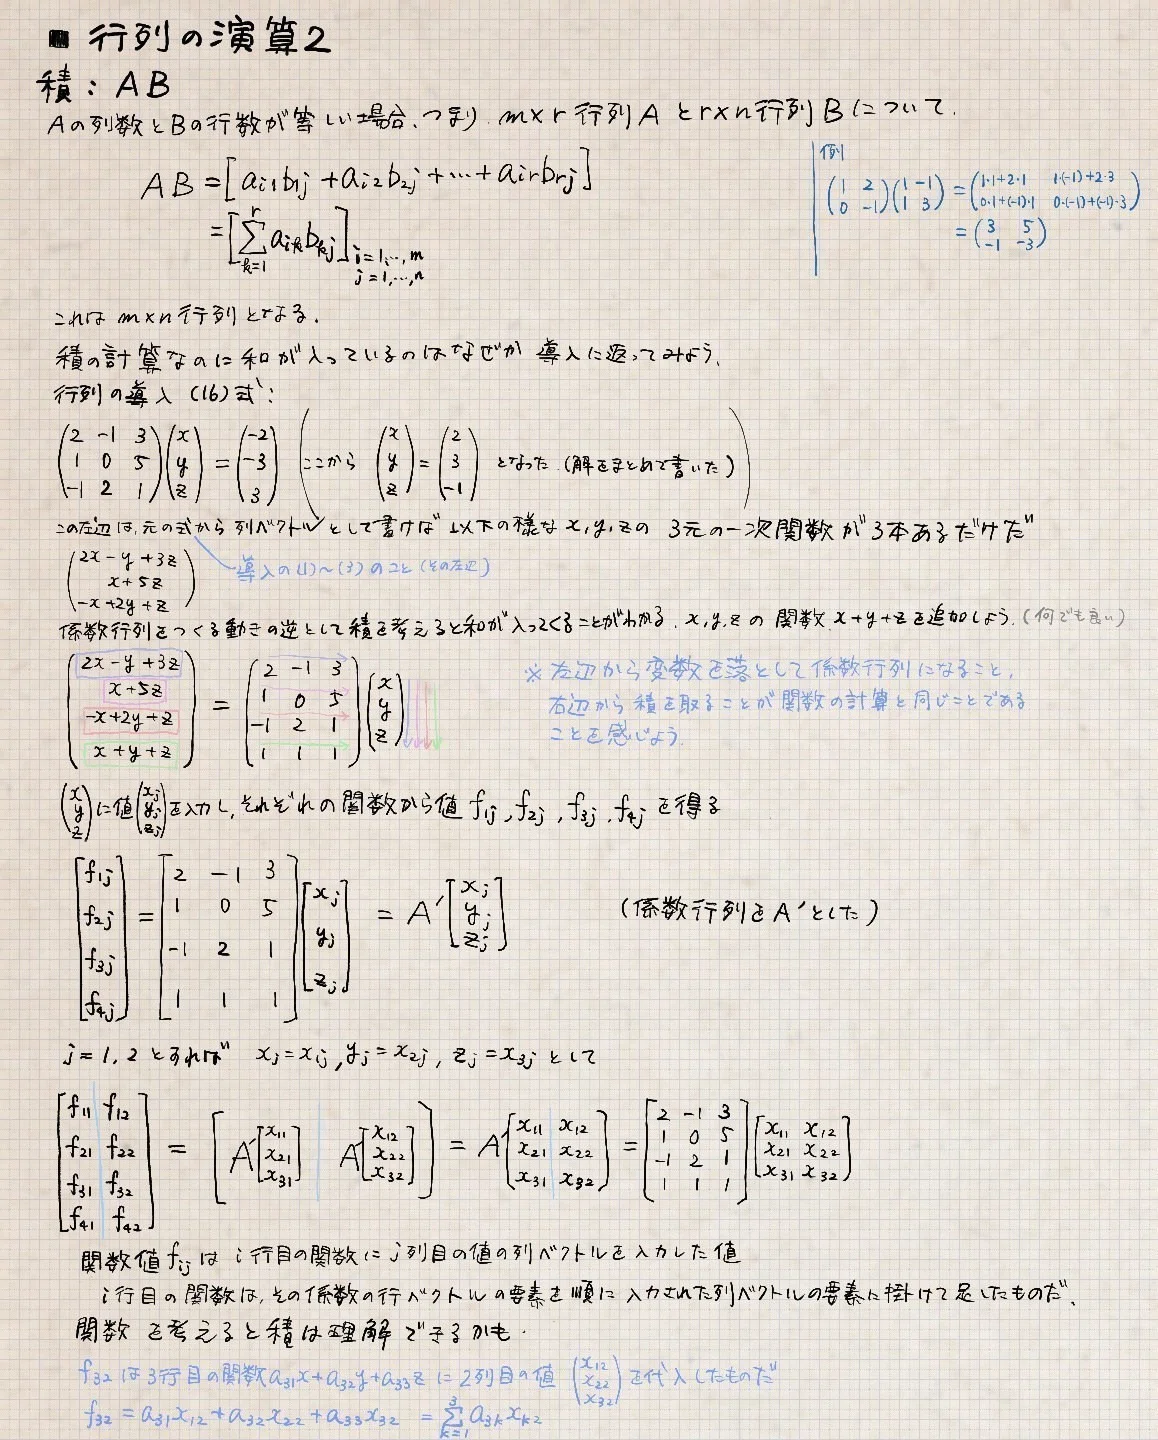 ■ 行列の演算2
積：AB
Aの列数とBの行数が等しい場合、つまり m×r 行列 A と r×n 行列 B について、
AB = [a_{i1}b_{1j} + a_{i2}b_{2j} + … + a_{ir}b_{rj}]
= [∑_{k=1}^{r} a_{ik}b_{kj}]_{i=1,…,m j=1,…,n}
例
(1 2 / 0 -1)(1 -1 / 1 3) = (1・1+2・1 1・(-1)+2・3 / 0・1+(-1)・1 0・(-1)+(-1)・3)
= (3 5 / -1 -3)
これは m×n 行列となる.
積の計算なのに和が入っているのはなぜか 導入に返ってみよう.
行列の導入 (16)式：
(2 -1 3 / 1 0 5 / -1 2 1)(x / y / z) = (-2 / -3 / 3) (ここから (x / y / z) = (2 / 3 / -1) となった.(解をまとめて書いた))
この左辺は、元の式から列ベクトルとして書けば 以下の様な x,y,zの 3元の一次関数が3本あるだけだ
(2x-y+3z / x+5z / -x+2y+z)
導入の(1)～(3)のこと(その左辺)
係数行列をつくる動きの逆として積を考えると和が入ってくることがわかる. x,y,zの関数 x+y+zを追加しよう.(何でも良い)
(2x-y+3z / x+5z / -x+2y+z / x+y+z) = (2 -1 3 / 1 0 5 / -1 2 1 / 1 1 1)(x / y / z)
※ 左辺から変数を落として係数行列になること,
右辺から積を取ることが関数の計算と同じことである
ことを感じよう.
(x / y / z)に値(x_j / y_j / z_j)を入力し,それぞれの関数から値 f_{1j}, f_{2j}, f_{3j}, f_{4j} を得る
[f_{1j} / f_{2j} / f_{3j} / f_{4j}] = [2 -1 3 / 1 0 5 / -1 2 1 / 1 1 1][x_j / y_j / z_j] = A'[x_j / y_j / z_j] (係数行列をA'とした)
j=1,2とすれば x_j=x_{1j}, y_j=x_{2j}, z_j=x_{3j} として
[f_{11} f_{12} / f_{21} f_{22} / f_{31} f_{32} / f_{41} f_{42}] = [A'[x_{11} / x_{21} / x_{31}] A'[x_{12} / x_{22} / x_{32}]] = A'[x_{11} x_{12} / x_{21} x_{22} / x_{31} x_{32}] = [2 -1 3 / 1 0 5 / -1 2 1 / 1 1 1][x_{11} x_{12} / x_{21} x_{22} / x_{31} x_{32}]
関数値 f_{ij} は i行目の関数に j列目の値の列ベクトルを入力した値
i行目の関数は,その係数の行ベクトルの要素を順に入力された列ベクトルの要素に掛けて足したものだ.
関数を考えると積は理解できるかも.
f_{32} は3行目の関数 a_{31}x+a_{32}y+a_{33}z に2列目の値 (x_{12} / x_{22} / x_{32}) を代入したものだ
f_{32} = a_{31}x_{12}+a_{32}x_{22}+a_{33}x_{32} = ∑_{k=1}^{3} a_{3k}x_{k2}